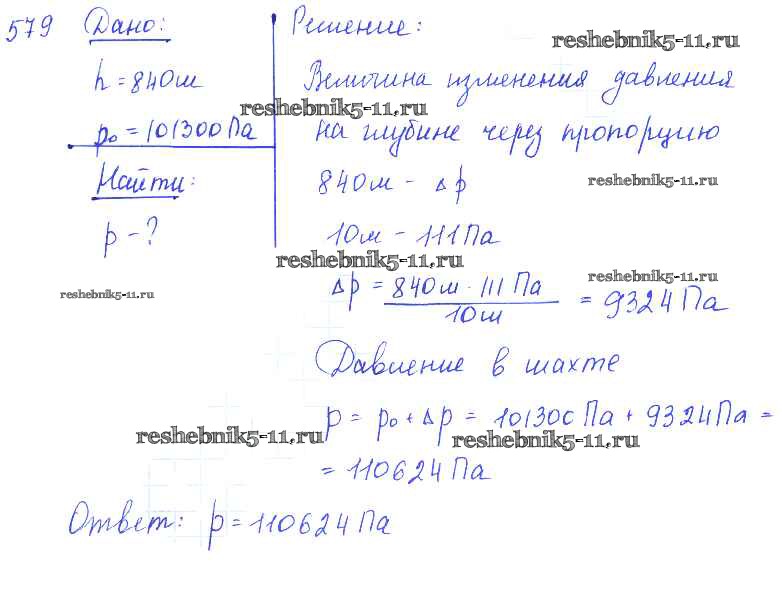 579 Дано:
h = 840м
p₀ = 101300 Па
Найти:
p - ?
Решение:
Величина изменения давления
на глубине через пропорцию
840м - Δp
10м - 111 Па
Δp = 840м · 111 Па / 10м = 9324 Па
Давление в шахте
p = p₀ + Δp = 101300 Па + 9324 Па =
= 110624 Па
Ответ: p = 110624 Па
reshebnik5-11.ru
reshebnik5-11.ru
reshebnik5-11.ru
reshebnik5-11.ru
reshebnik5-11.ru
reshebnik5-11.ru
reshebnik5-11.ru
reshebnik5-11.ru